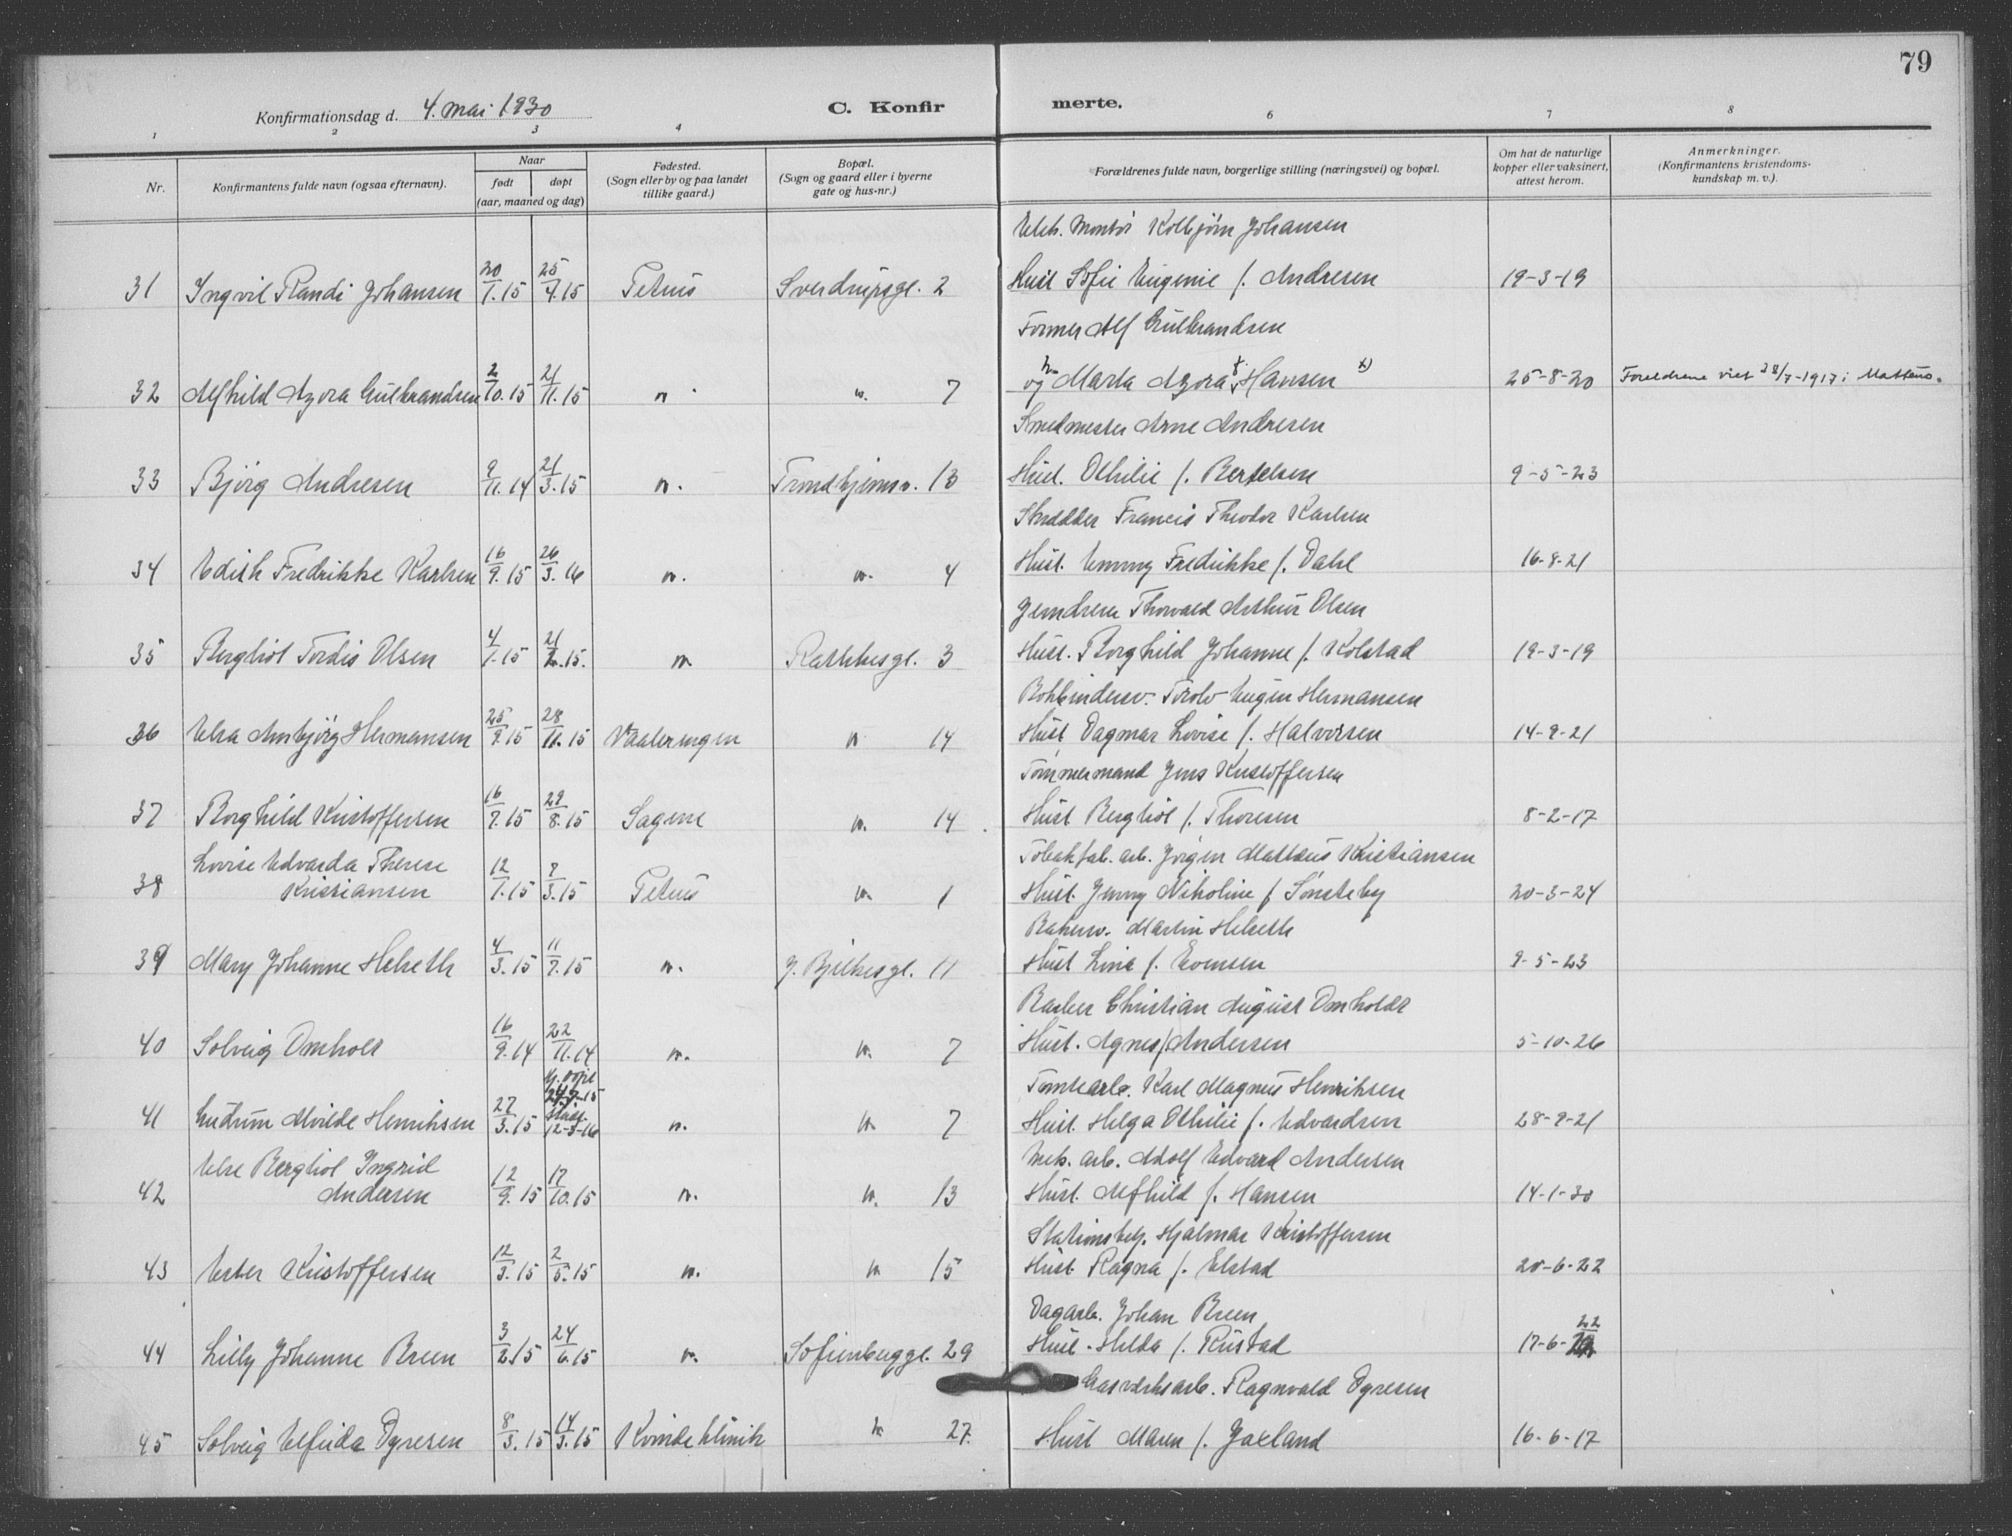 79
Konfirmationsdag d. 4. mai 1930
C. Konfir
merte.
1 2 3 4 6 7 8
Nr.
Konfirmantens fulde navn (ogsaa efternavn).
Naar
født
døpt
(aar, maaned og dag)
Fødested.
(Sogn eller by og paa landet
tillike gaard.)
Bopæl.
(Sogn og gaard eller i byerne
gate og hus-nr.)
Forældrenes fulde navn, borgerlige stilling (næringsvei) og bopæl.
Om hat de naturlige
kopper eller vaksinert,
attest herom.
Anmerkninger.
(Konfirmantens kristendoms-
kundskap m. v.).
Elek. Montør Kolbjørn Johansen
31 Ingvil Randi Johansen 20/1.15 25/4.15 Petrus Sverdrupsgt. 2 Hust. Sofie Eugenie f. Andresen 19-3-19
Former Alf Gulbrandsen
32 Alfhild Azora Gulbrandsen 2/10.15 21/11.15 " " 7 og Marta Azora Hansen x) 25-8-20 Foreldrene viet 28/7-1917 i Matteus.
Smedmester Arne Andresen
33 Bjørg Andresen 9/11.14 21/3.15 " Trondhjemsv. 13 Hust. Othilie f. Bertelsen 9-5-23
Skrædder Francis Theodor Karlsen
34 Edith Fredrikke Karlsen 16/9.15 26/3.16 " " 4 Hust. Emmy Fredrikke f. Dahl 16-8-21
Thorvald Arthur Olsen
35 Bergliot Tordis Olsen 4/1.15 21/2.15. " Rathkesgt. 3 Hust. Borghild Johanne f. Kolstad 19-3-19
Bokbindersv. Torolv Eugen Hermansen
36 Elsa Ansbjørg Hermansen 25/9.15 28/11.15 Vaalerengen " 14 Hust. Dagmar Lovise f. Halvorsen 14-9-21
Tømmermand Jens Kristoffersen
37 Borghild Kristoffersen 16/7.15 29/8.15 Sagene " 14 Hust. Bergliot f. Thoresen 8-2-17
Lovise Edvarda Therese
Tobakfab. arb. Jørgen Mattæus Kristiansen
38 Kristiansen 12/1.15 7/3.15 Petrus " 1 Hust. Jenny Nikoline f. Sønsteby 20-3-24
Bakersv. Martin Helseth
39 Mary Johanne Helseth 4/3.15 11/7.15 " J. Bjelkesgt. 11 Hust. Lina f. Evensen 9-5-23
Barber Christian August Omholdt
40 Solveig Omholt 16/9.14 22/11.14 " " 7 Hust. Agnes f. Andersen 5-10-26
Tomtearb. Karl Magnus Henriksen
41 Gudrun Alvilde Henriksen 27/3.15 hj. døpt 12-3-16 " " 7 Hust. Helga Othilie f. Edvardsen 28-9-21
Else Bergliot Ingrid
Mek. arb. Adolf Edvard Andersen
42 Andersen 12/9.15 17/10.15 " " 13 Hust. Alfhild f. Hansen 14-1-30
Stationsbetj. Hjalmar Kristoffersen
43 Ester Kristoffersen 12/3.15 2/5.15 " " 15 Hust. Ragna f. Elstad 20-6-22
Dagarb. Johan Breen
44 Lilly Johanne Breen 3/2.15 24/6.15 " Sofienberggt. 29 Hust. Hilda f. Rustad 17-6-22
Gasverksarb. Ragnvald Dyresen
45 Solveig Elfrida Dyresen 8/3.15 14/3.15 Kvindeklinik " 27. Hust. Maren f. Jaxland 16-6-17